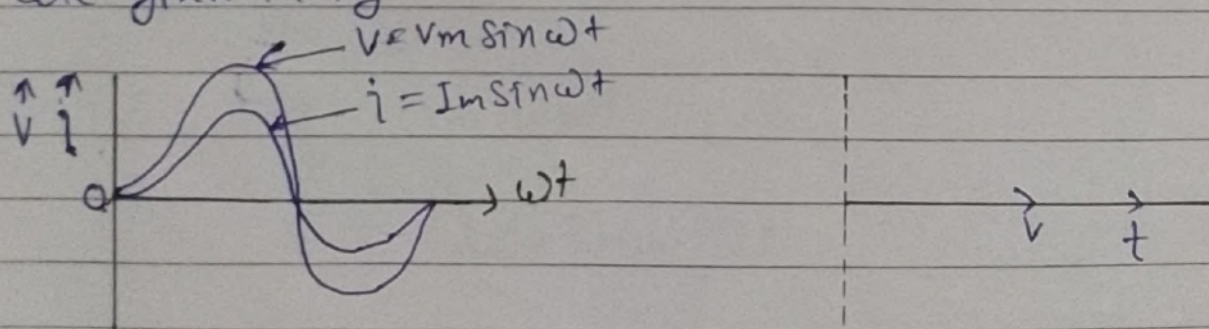 V = Vm sin ωt
i = Im sin ωt
V i
O
ωt
V t